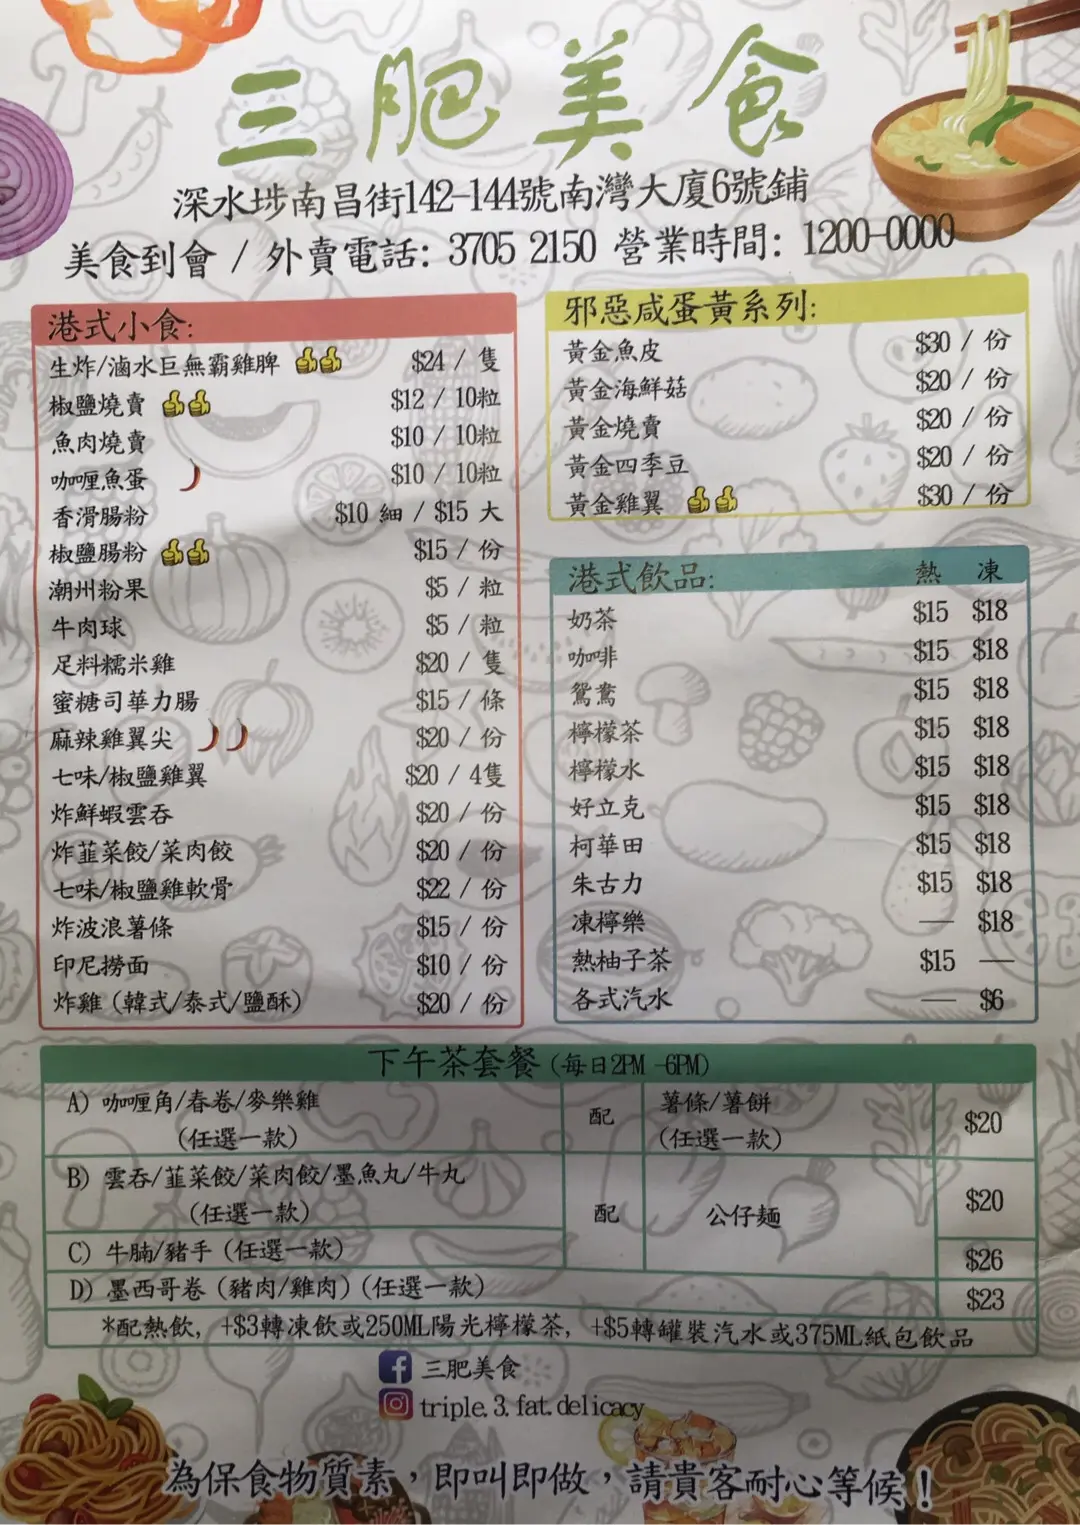 三肥美食
深水埗南昌街142-144號南灣大廈6號鋪
美食到會 / 外賣電話: 3705 2150 營業時間: 1200-0000
港式小食:
生炸/滷水巨無霸雞脾 $24 / 隻
椒鹽燒賣 $12 / 10粒
魚肉燒賣 $10 / 10粒
咖喱魚蛋 $10 / 10粒
香滑腸粉 $10 細 / $15 大
椒鹽腸粉 $15 / 份
潮州粉果 $5 / 粒
牛肉球 $5 / 粒
足料糯米雞 $20 / 隻
蜜糖司華力腸 $15 / 條
麻辣雞翼尖 $20 / 份
七味/椒鹽雞翼 $20 / 4隻
炸鮮蝦雲吞 $20 / 份
炸韮菜餃/菜肉餃 $20 / 份
七味/椒鹽雞軟骨 $22 / 份
炸波浪薯條 $15 / 份
印尼撈面 $10 / 份
炸雞 (韓式/泰式/鹽酥) $20 / 份
邪惡咸蛋黃系列:
黃金魚皮 $30 / 份
黃金海鮮菇 $20 / 份
黃金燒賣 $20 / 份
黃金四季豆 $20 / 份
黃金雞翼 $30 / 份
港式飲品: 熱 凍
奶茶 $15 $18
咖啡 $15 $18
鴛鴦 $15 $18
檸檬茶 $15 $18
檸檬水 $15 $18
好立克 $15 $18
柯華田 $15 $18
朱古力 $15 $18
凍檸樂 — $18
熱柚子茶 $15 —
各式汽水 — $6
下午茶套餐 (每日2PM -6PM)
A) 咖喱角/春卷/麥樂雞 配 薯條/薯餅 $20
(任選一款) (任選一款)
B) 雲吞/韮菜餃/菜肉餃/墨魚丸/牛丸 $20
(任選一款) 配 公仔麵
C) 牛腩/豬手 (任選一款) $26
D) 墨西哥卷 (豬肉/雞肉) (任選一款) $23
*配熱飲, +$3轉凍飲或250ML陽光檸檬茶, +$5轉罐裝汽水或375ML紙包飲品
三肥美食
triple.3.fat.delicacy
為保食物質素，即叫即做，請貴客耐心等候！